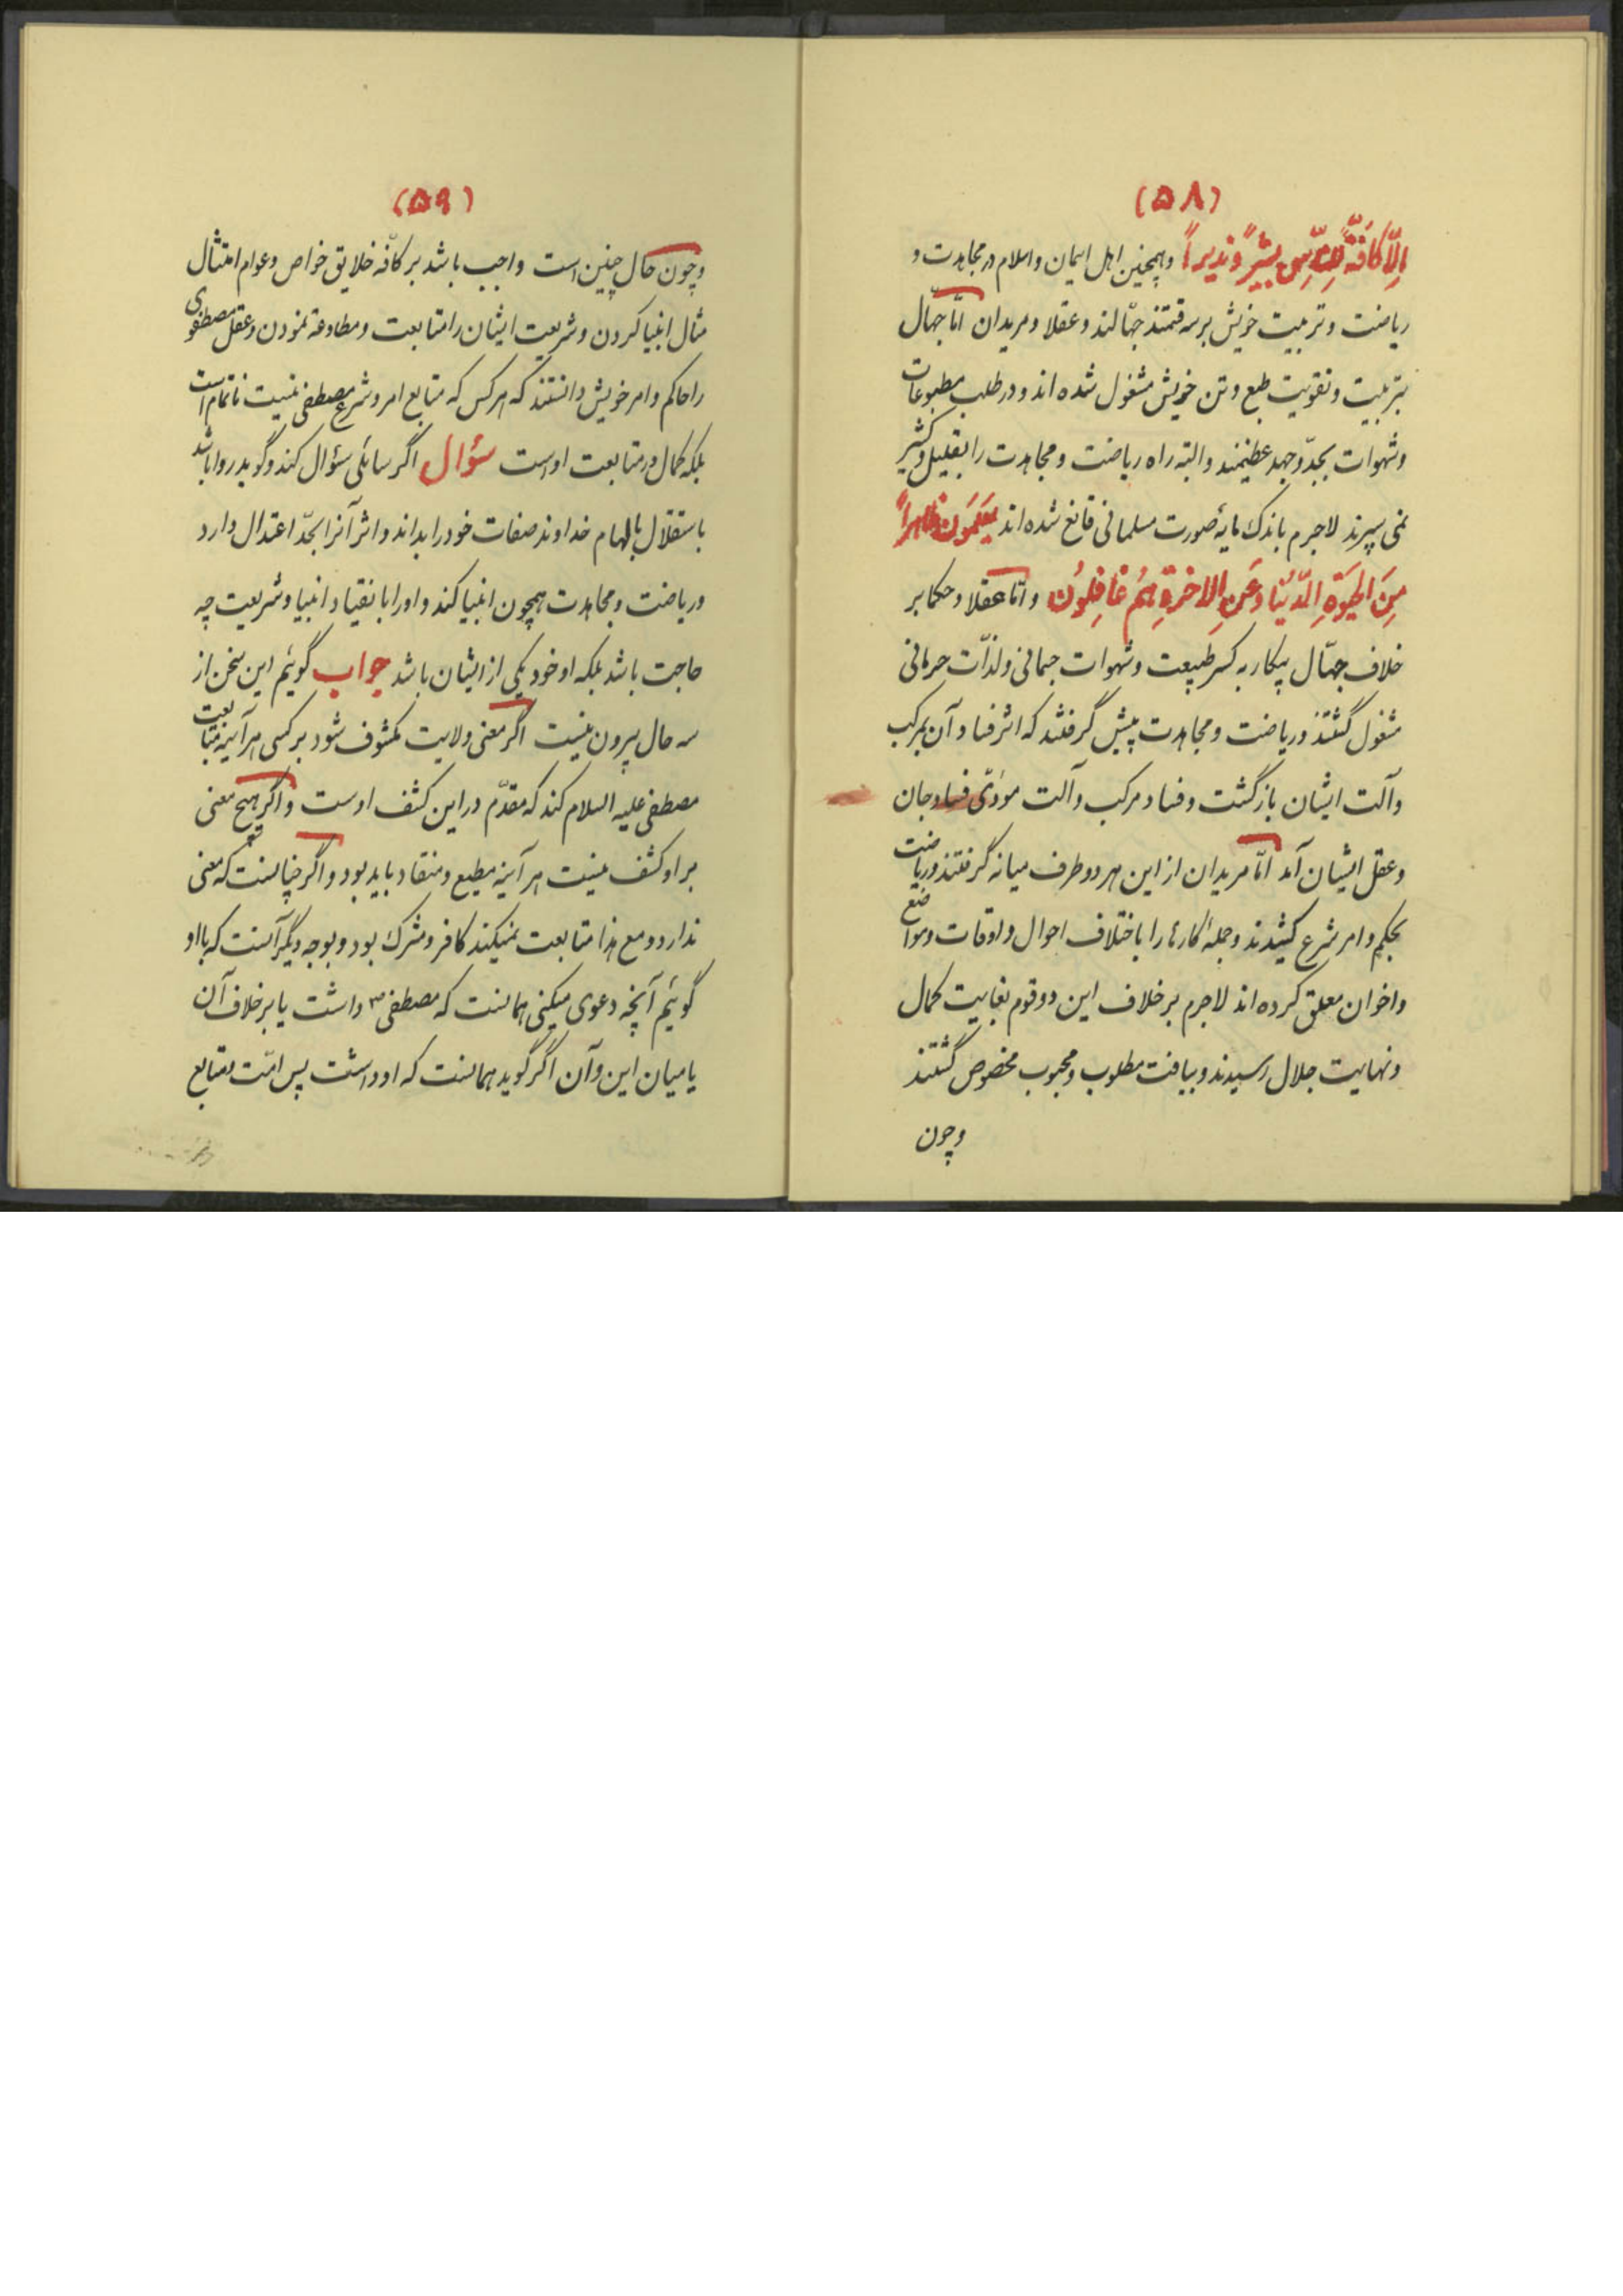 (۵۸)
اِلّا کافَّةً لِلنّاسِ بشیراً و نذیراً وهمچنین اهل ایمان واسلام در مجاهدت و
ریاضت وتربیت خویش برسه قسمتند جهّالند وعقلا ومریدان امّا جهّال
بتربیت وتقویت طبع وتن خویش مشغول شده اند ودرطلب مطبوعات
وشهوات بجدّ وجهد عظیمند والبته راه ریاضت ومجاهدت را بقلیل وکثیر
نمی سپرند لاجرم باندک مایهٔ صورت مسلمانی قانع شده اند یَعلَمُونَ ظاهِراً
مِنَ الحَیٰوةِ الدّنیا وَعَنِ الاخرةِ هُم غافِلُون وامّا عقلا وحکما بر
خلاف جهّال پیکار به کسر طبیعت وشهوات جسمانی ولذّات حرمانی
مشغول گشتند وریاضت ومجاهدت پیش گرفتند که اثر فساد آن بمرکب
وآلت ایشان بازگشت وفساد مرکب وآلت مودّی فساد جان
وعقل ایشان آمد امّا مریدان از این هر دو طرف میانه گرفتند وریاضت
بحکم وامر شرع کشیدند وجملهٔ کارها را باختلاف احوال واوقات ومواضع
واخوان معلق کرده اند لاجرم برخلاف این دو قوم بغایت کمال
ونهایت جلال رسیدند وبیافت مطلوب ومحبوب مخصوص گشتند
وچون
(۵۹)
وچون حال چنین است واجب باشد بر کافّه خلایق خواص وعوام امتثال
مثال انبیا کردن وشریعت ایشان را متابعت ومطاوعة نمودن وعقل مصطفوی
را حاکم وامر خویش دانستند که هرکس که متابع امر وشرع مصطفی نیست ناتمام است
بلکه کمال در متابعت اوست سئوال اگر سائلی سئوال کند وگوید روا باشد
باستقلال بالهام خداوند صفات خود را بداند واثر آنرا بحدّ اعتدال دارد
وریاضت ومجاهدت همچون انبیا کند واورا بانقیاد انبیا وشریعت چه
حاجت باشد بلکه او خود یکی از ایشان باشد جواب گوئیم این سخن از
سه حال بیرون نیست اگر معنی ولایت مکشوف شود بر کسی هرآینه متابعت
مصطفی علیه السلام کند که مقدّم در این کشف اوست واگر هیچ معنی
بر او کشف نیست هرآینه مطیع ومنقاد باید بود واگر چنانست که معنی
ندارد ومع هذا متابعت نمیکند کافر ومشرک بود وبوجه دیگر آنست که با او
گوئیم آنچه دعوی میکنی همانست که مصطفی ص داشت یا برخلاف آن
یا میان این وآن اگر گوید همانست که او داشت پس امّت ومتابع